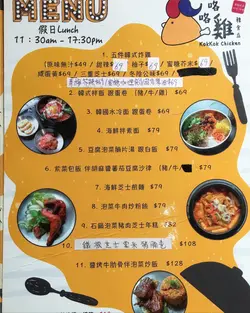 MENU
咯咯雞
KokKok Chicken
假日Lunch
11:30am - 17:30pm
1. 五件韓式炸雞
(原味無汁$69 / 甜辣$69 柚子$69 / 蜜糖芥末$69
/ 三重芝士$69 / 冬陰公味$69
2. 韓式拌飯 跟蛋卷 (豬/牛/雞) $69
3. 韓國水冷面 跟蛋卷 $69
4. 海鮮拌素面 $79
5. 豆腐泡菜腩片湯 跟白飯 $79
6. 紫菜包飯 伴胡麻醬蕃茄豆腐沙律 (豬/牛/
7. 海鮮芝士煎餅 $79
8. 泡菜牛肉炒粉絲 $79
9. 石鍋泡菜豬肉芝士年糕 $
10. $108
11. 鹽烤牛肋骨伴泡菜炒飯 $128